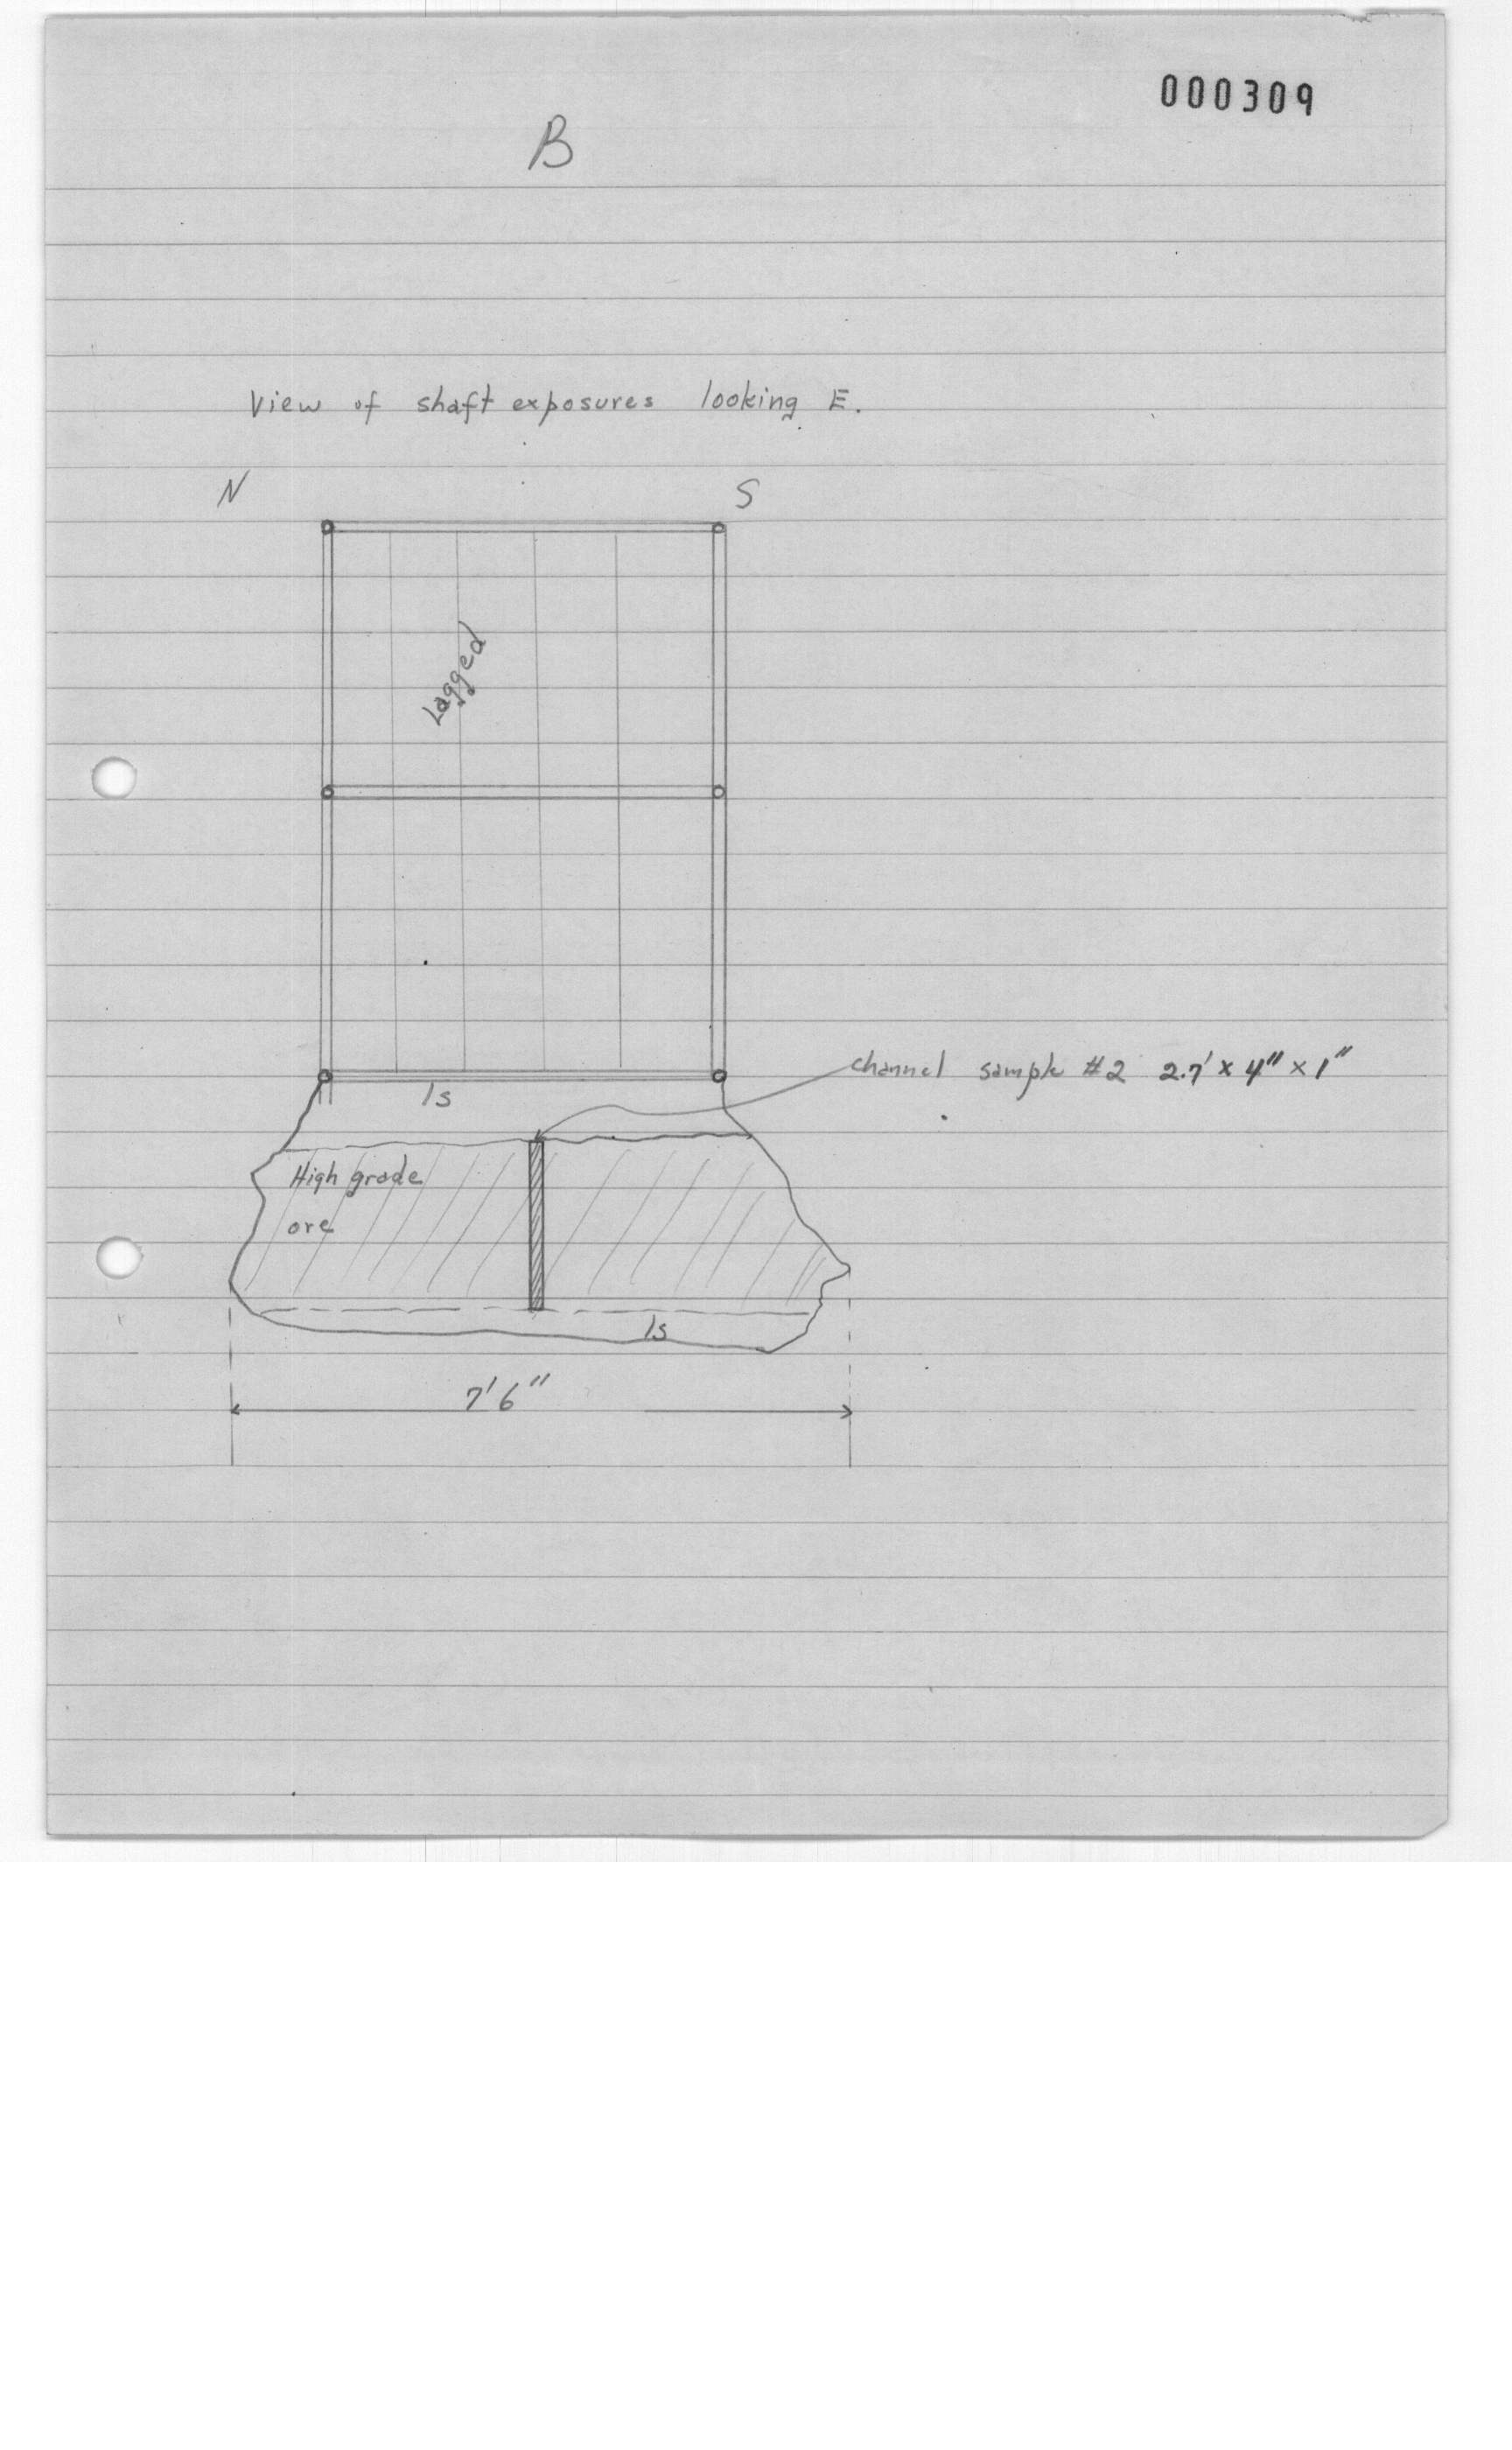 000309
B
View of shaft exposures looking E.
N S
Lagged
channel sample #2 2.7' x 4" x 1"
ls
High grade
ore
ls
7'6"